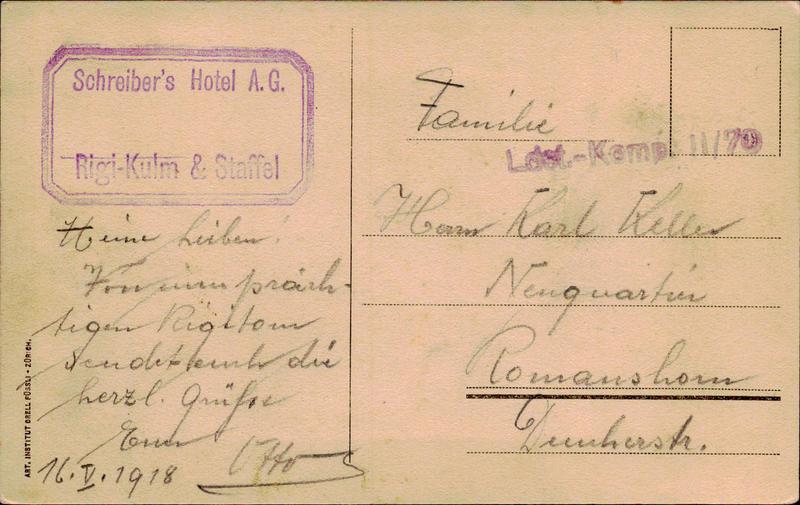 Schreiber's Hotel A.G.
Rigi-Kulm & Staffel
Meine Lieben!
Von einem präch-
tigen Rigitour
sendet euch die
herzl. Grüsse
Euer
Otto
16.V.1918
Familie
Ldst.-Komp. II/70
Herrn Karl Keller
Neuquartier
Romanshorn
ART. INSTITUT ORELL FÜSSLI - ZÜRICH.